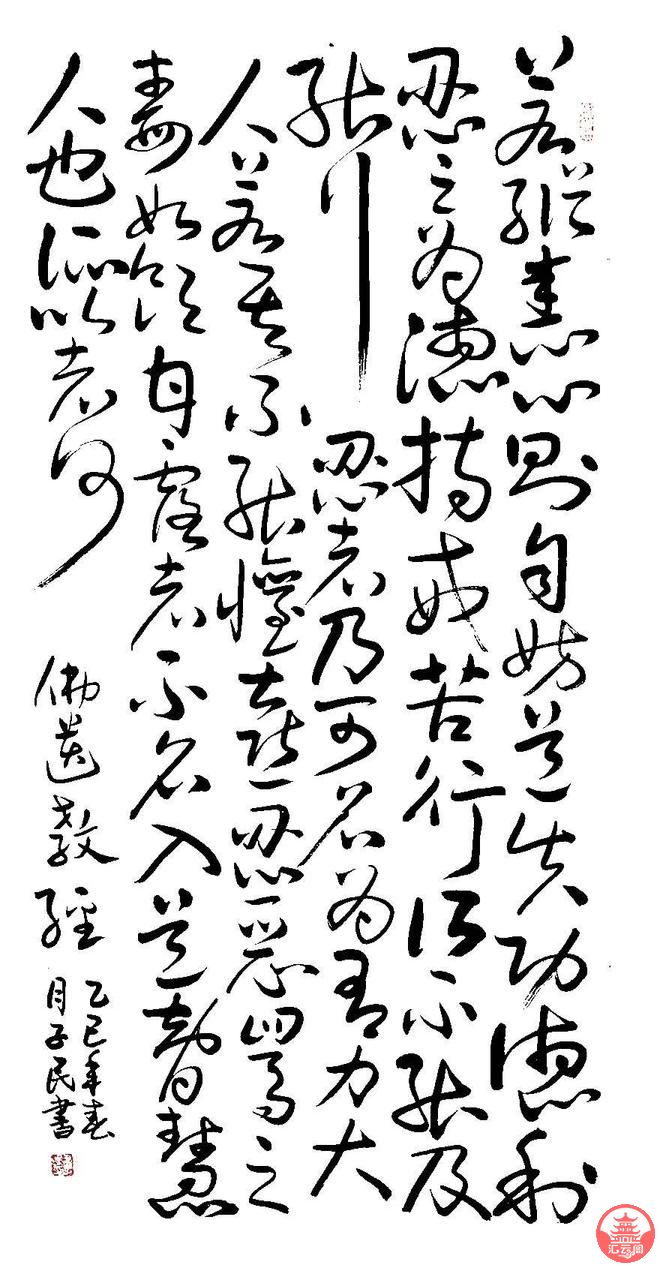 若縱恚心則自妨道失功德利
忍之為德持戒苦行所不能及
能行忍者乃可名為有力大
人若其不能懽喜忍受惡罵之
毒如飲甘露者不名入道智慧
人也所以者何
佛遺教經
乙巳年春
月子民書
汇云阁